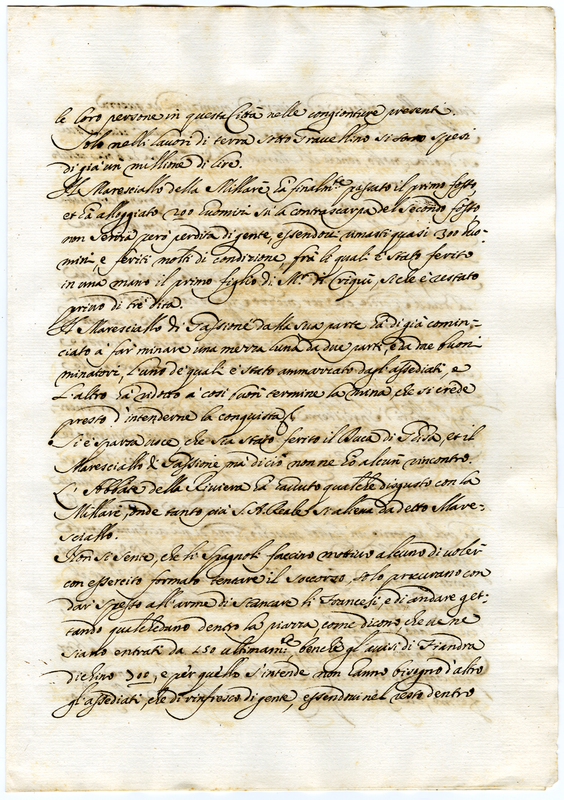 le loro persone in questa Città nelle congionture presenti.
Solo nelli lavori di terra sotto Gravellino si sono spesi
di già un millione di lire.
Il Maresciallo della Millare ha finalm.te passato il primo fosso
et ha alloggiato 200 huomini sù la contrascarpa del secondo fosso
non senza però perdita di gente, essendovi rimasti quasi 300 huo-
mini, e feriti molti di condizione, frà li quali è stato ferito
in una mano il primo figlio di M.r di Criquì, ne è restato
privo di trè dita.
Il Maresciallo di Gassione dalla sua parte hà di già comin-
ciato à far minare una mezza luna da due parti, buoni
minatori, l'uno de quali è stato ammazzato dagl'assediati, e
l'altro hà ridotto à così buon termine la mina, che si crede
presto d'intenderne la conquista.
Si è sparsa voce che sia stato ferito il Duca di et il
Maresciallo di Gassione mà di ciò non ne hò alcun rincontro.
L'Abbate della Riviera hà havuto qualche disgusto con la
Millare, onde tanto più S. A. Reale si aliena da detto Mare-
sciallo.
Non si sente, che li Spagnoli faccino motivo alcuno di voler
con essercito formato tentare il soccorso, solo procurano con
dar spesso all'arme di stancare li Francesi, e di andare get-
tando qualcheduno dentro la piazza, come dicono che ve ne
siano entrati da 150 ultimam.te benche gl'avisi di Fiandra
dichino 300, e per quello s'intende non hanno bisogno d'altro
gl'assediati, che di rinfresco di gente, essendovi nel resto dentro